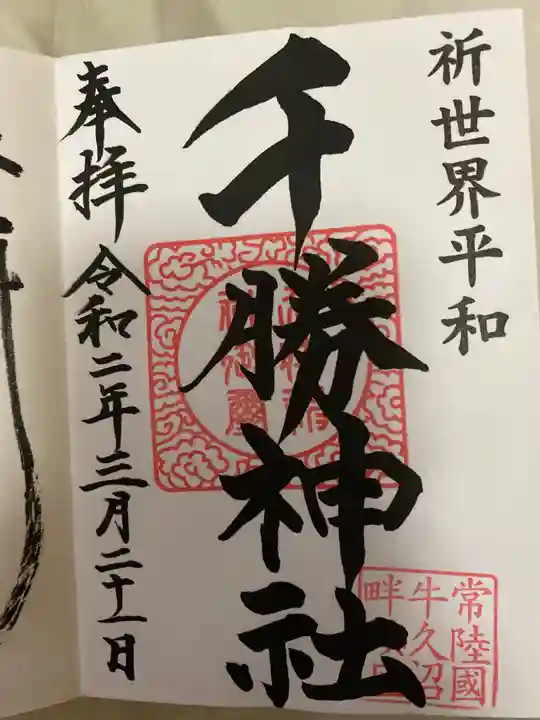 祈世界平和
千勝神社
奉拝
令和二年三月二十一日
常陸國
牛久沼
畔